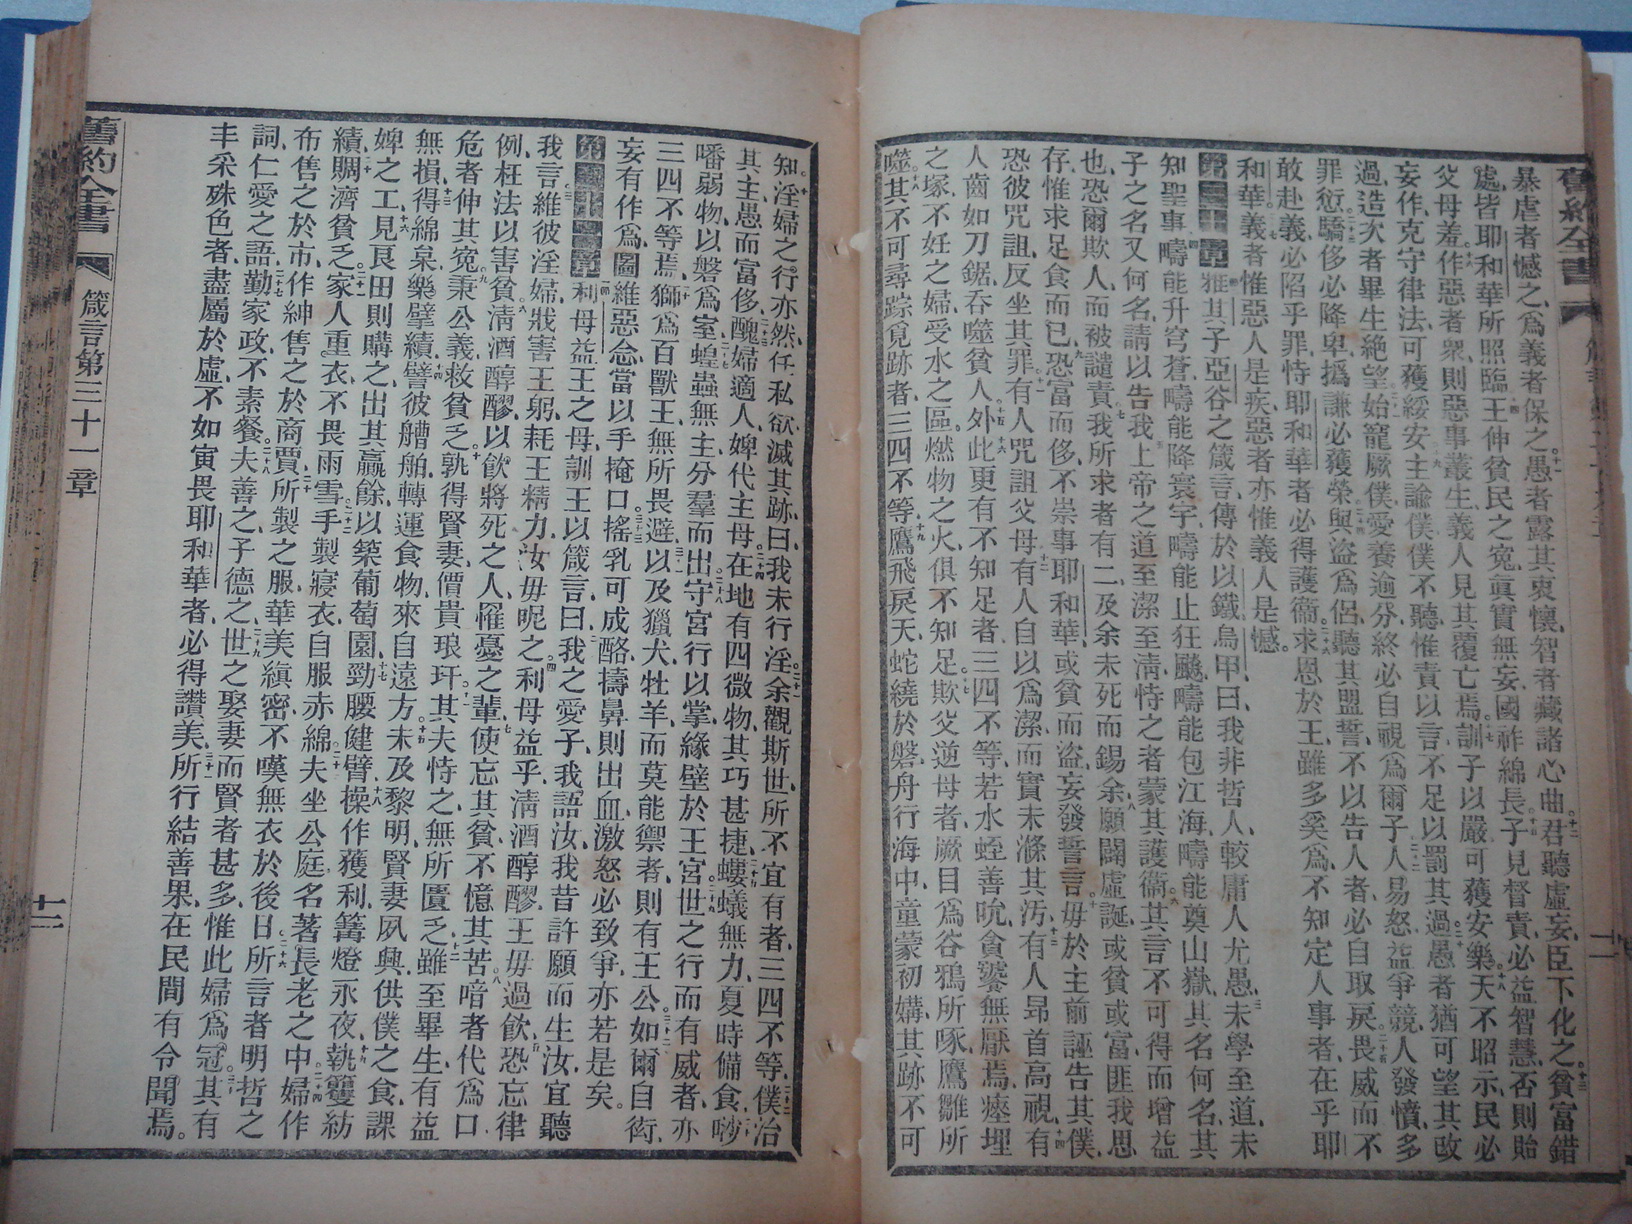 舊約全書
暴虐者憾之、爲義者保之、十一愚者露其衷懷、智者藏諸心曲、十二君聽虛妄、臣下化之、十三貧富錯
處、皆耶和華所照臨、十四王伸貧民之冤、眞實無妄、國祚綿長、十五子見督責、必益智慧、否則貽
父母羞、十六作惡者衆、則惡事叢生、義人見其覆亡焉、十七訓子以嚴、可獲安樂、十八天不昭示、民必
妄作、克守律法、可獲綏安、十九主諭僕、僕不聽、惟責以言、不足以罰其過、二十愚者猶可望其改
過、造次者畢生絕望、二一始寵厥僕、愛養逾分、終必自視爲爾子、二二人易怒、益爭競、人發憤、多
罪愆、二三驕侈必降卑、撝謙必獲榮、二四與盜爲侶、聽其盟誓、不以告人者、必自取戾、二五畏威而不
敢赴義、必陷乎罪、恃耶和華者、必得護衞、二六求恩於王、雖多奚爲、不知定人事者、在乎耶
和華、二七義者惟惡人是疾、惡者亦惟義人是憾。
第三十章 雅基子亞谷之箴言、傳於以鐵烏甲曰、二我非哲人、較庸人尤愚、三未學至道、未
知聖事、四疇能升穹蒼、疇能降寰宇、疇能止狂飈、疇能包江海、疇能奠山嶽、其名何名、其
子之名又何名、請以告我、五上帝之道、至潔至淸、恃之者蒙其護衞、六其言不可得而增益
也、恐爾欺人、而被譴責、七我所求者有二、及余未死而錫余、八願闢虛誕、或貧或富、匪我思
存、惟求足食而已、九恐富而侈、不崇事耶和華、或貧而盜、妄發誓言、十毋於主前誣告其僕、
恐彼咒詛、反坐其罪、十一有人咒詛父母、十二有人自以爲潔、而實未滌其汚、十三有人昂首高視、十四有
人齒如刀鋸、吞噬貧人、十五外此更有不知足者、三四不等、若水蛭善吮、貪饕無厭焉、十六瘞埋
之塚、不妊之婦、受水之區、燃物之火、俱不知足、十七欺父逆母者、厥目爲谷鴉所啄、鷹雛所
噬、十八其不可尋踪覓跡者、三四不等、十九鷹飛戾天、蛇繞於磐、舟行海中、童蒙初媾、其跡不可
知、二十淫婦之行亦然、任私欲、滅其跡、曰、我未行淫、二一余觀斯世、所不宜有者、三四不等、二二僕治
其主、愚而富侈、二三醜婦適人、婢代主母、二四在地有四微物、其巧甚捷、二五螻蟻無力、夏時備食、二六𠵇
噃弱物、以磐爲室、二七蝗蟲無主、分羣而出、二八守宮行以掌、緣壁於王宮、二九世之行而有威者、亦
三四不等焉、三十獅爲百獸王、無所畏避、三一以及獵犬牡羊、而莫能禦者、則有王公、三二如爾自衒、
妄有作爲、圖維惡念、當以手掩口、三三搖乳可成酪、擣鼻則出血、激怒必致爭、亦若是矣。
第三十一章 利母益王之母、訓王以箴言曰、二我之愛子、我語汝、我昔許願而生汝、宜聽
我言、三維彼淫婦、戕害王躬、耗王精力、汝毋昵之、四利母益乎、淸酒醇醪、王毋過飲、五恐忘律
例、枉法以害貧、六淸酒醇醪、以飲將死之人、罹憂之輩、七使忘其貧、不憶其苦、八喑者代爲口、
危者伸其冤、九秉公義、救貧乏、十孰得賢妻、價貴琅玕、十一其夫恃之、無所匱乏、十二雖至畢生、有益
無損、十三得綿枲、樂擘績、十四譬彼艚舶、轉運食物、來自遠方、十五未及黎明、賢妻夙興、供僕之食、課
婢之工、十六見良田則購之、出其贏餘、以築葡萄園、十七勁腰健臂、十八操作獲利、篝燈永夜、十九執𨏦紡
績、二十賙濟貧乏、二一家人重衣、不畏雨雪、二二手製寢衣、自服赤綿、二三夫坐公庭、名著長老之中、二四婦作
布售之於市、作紳售之於商賈、二五所製之服、華美縝密、不嘆無衣於後日、二六所言者明哲之
詞、仁愛之語、二七勤家政、不素餐、二八夫善之、子德之、二九世之娶妻而賢者甚多、惟此婦爲冠、三十其有
丰采殊色者、盡屬於虛、不如寅畏耶和華者、必得讚美、三一所行結善果、在民間有令聞焉。
舊約全書 箴言第三十一章 十二